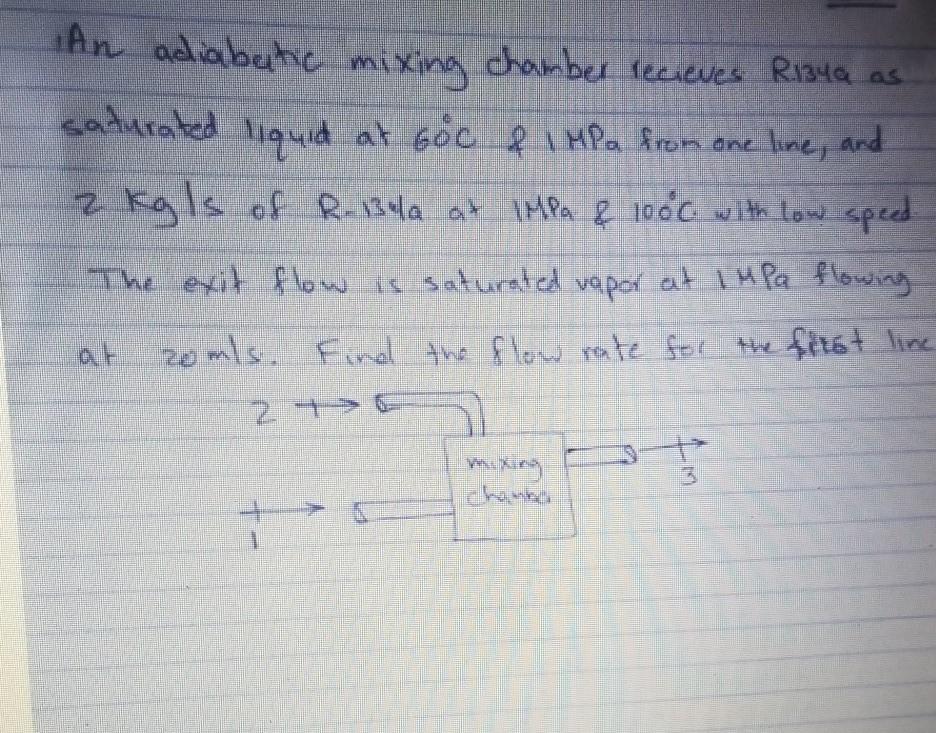 An adiabatic mixing chamber recieves R134a as
saturated liquid at 60°C & 1 MPa from one line, and
2 Kg/s of R-134a at 1MPa & 100°C with low speed
The exit flow is saturated vapor at 1 MPa flowing
at 20 m/s. Find the flow rate for the first line
2
mixing
3
chamber
1